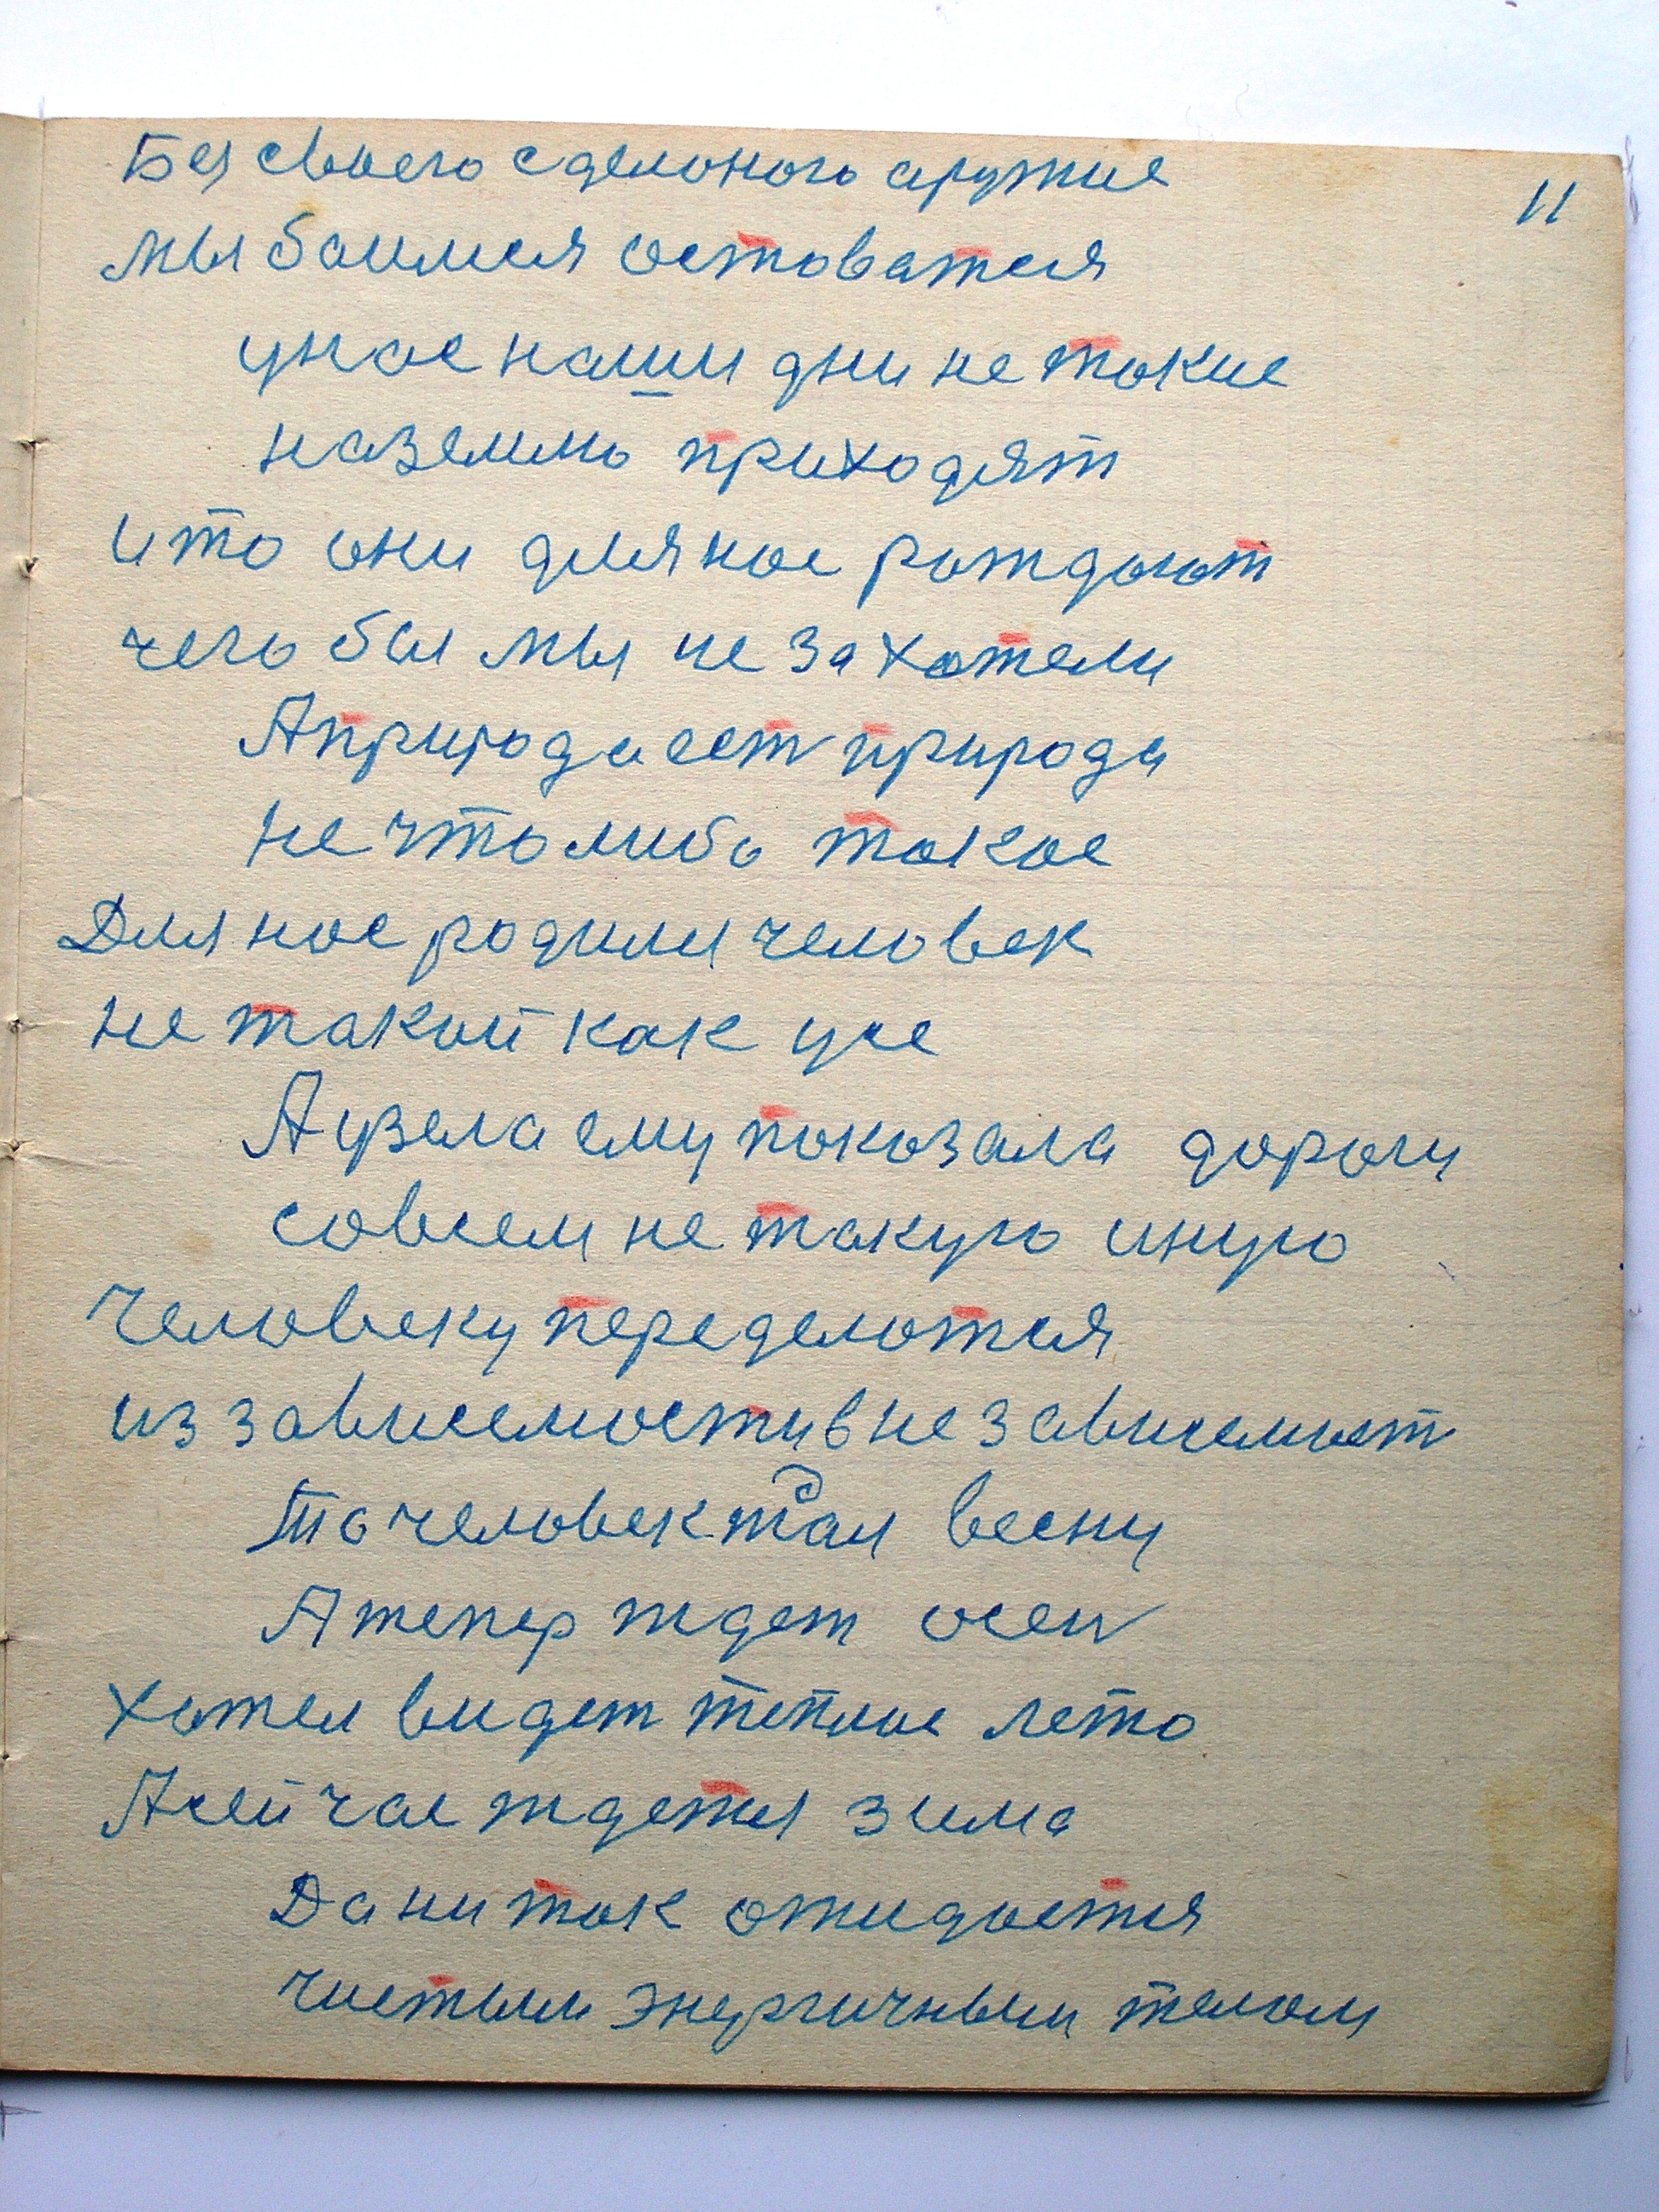 11
Без своего сделоного аружие
мы боимся остоватся
унас наши дни не токие
наземлю приходят
ито они для нас рождоют
чего бы мы не захотели
Априрода ест природа
не чтолибо токое
Для нас родился человек
не такой как усе
Аузела ему показала дорогу
совсем не такую иную
Человеку переделотся
из зависемостив не зависемост
То человек ждал весну
А тепер ждет осен
хотел видет теплое лето
Асейчас ждется зима
Дани так ожидоется
чистым энергичным телом